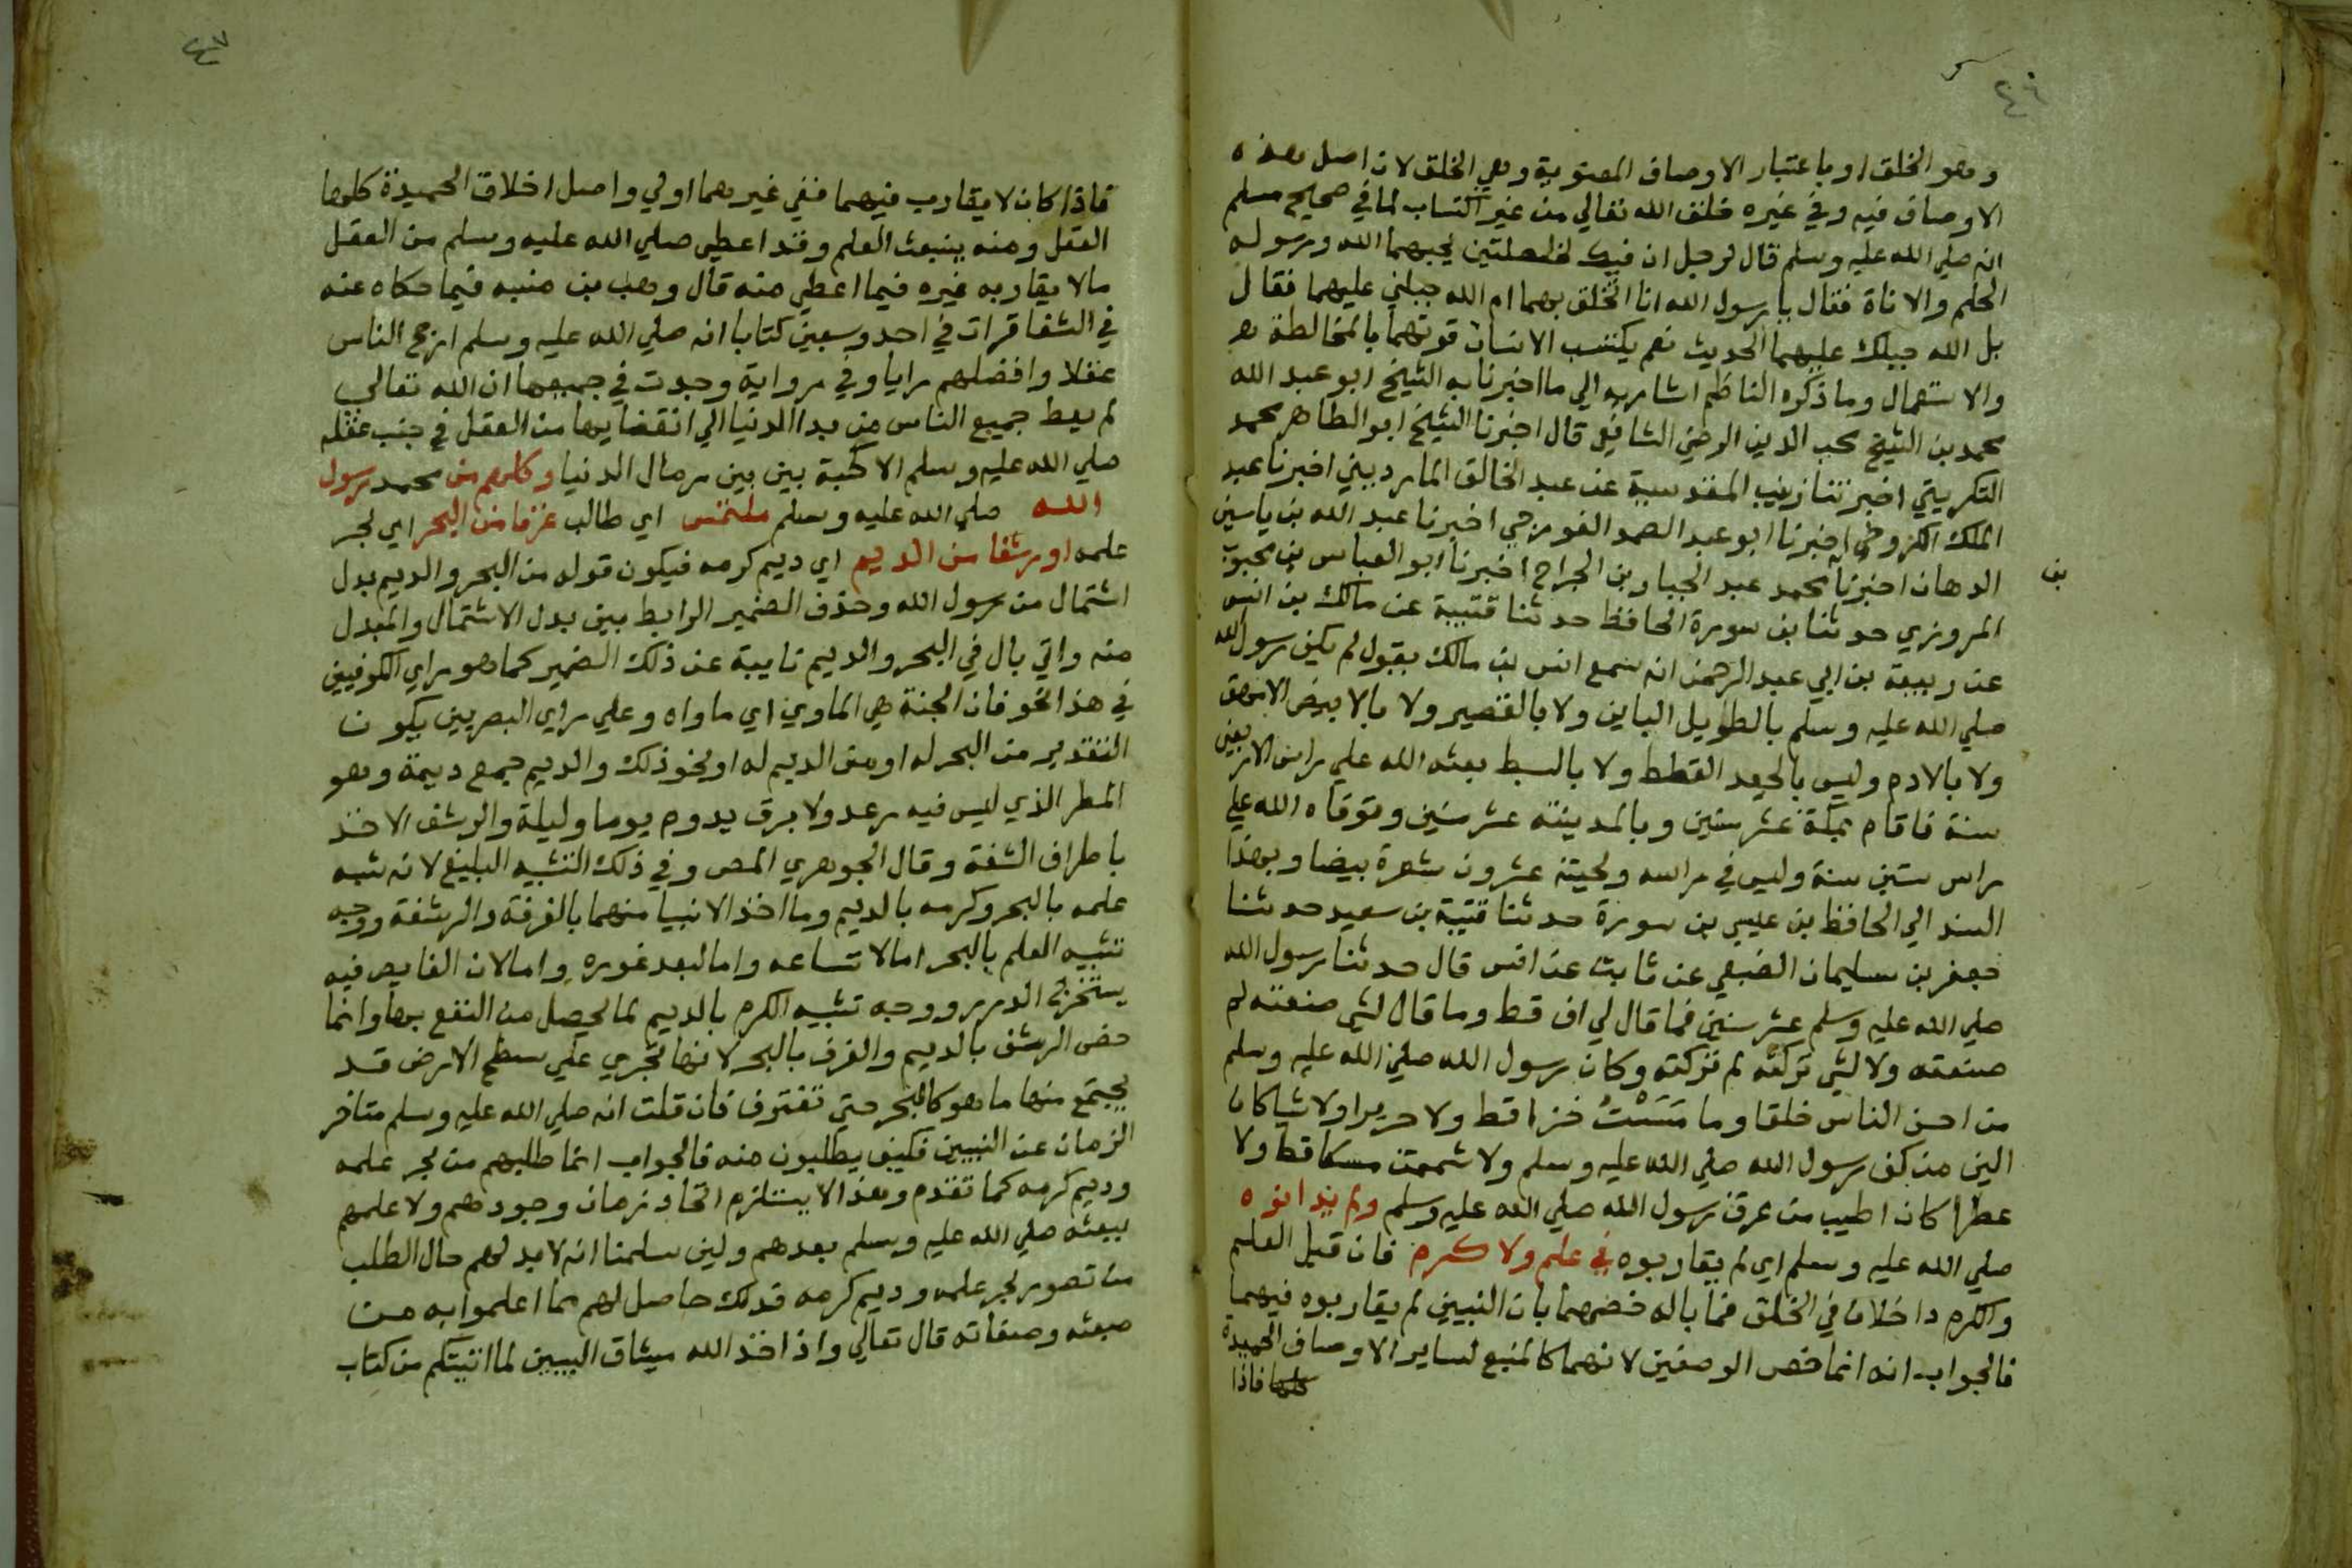 ٤٦
وهو الخلق او باعتبار الاوصاف المعنوية وهي الخلق لان اصل هذه
الاوصاف فيه وفي غيره خلق الله تعالي من غير اكتساب لما في صحيح مسلم
انه صلي الله عليه وسلم قال لرجل ان فيك لخصلتين يحبهما الله ورسوله
الحلم والاناة فقال يا رسول الله انا اتخلق بهما ام الله جبلني عليهما فقال
بل الله جبلك عليهما الحديث نعم يكتسب الانسان قوتهما بالمخالطة
والاستعمال وما ذكره الناظم اشار به الي ما اخبرنا به الشيخ ابو عبد الله
محمد بن الشيخ محب الدين الرضي الشافعي قال اخبرنا الشيخ ابو الطاهر محمد
التكريتي اخبرتنا زينب المقدسية عن عبد الخالق المارديني اخبرنا عبد
الملك الكروخي اخبرنا ابو عبد الصمد الغورجي اخبرنا عبد الله بن ياسين
الدهان اخبرنا محمد عبد الجبار بن الجراح اخبرنا ابو العباس بن محبوب
بن
المروزي حدثنا بن سورة الحافظ حدثنا قتيبة عن مالك بن انس
عن ربيعة بن ابي عبد الرحمن انه سمع انس بن مالك يقول لم يكن رسول الله
صلي الله عليه وسلم بالطويل الباين ولا بالقصير ولا بالابيض الامهق
ولا بالادم وليس بالجعد القطط ولا بالسبط بعثه الله علي راس الاربعين
سنة فاقام بمكة عشر سنين وبالمدينة عشر سنين وتوفاه الله علي
راس ستين سنة وليس في راسه ولحيته عشرون شعرة بيضا وبهذا
السند الي الحافظ بن عيسي بن سورة حدثنا قتيبة بن سعيد حدثنا
جعفر بن سليمان الضبعي عن ثابت عن انس قال حدثنا رسول الله
صلي الله عليه وسلم عشر سنين فما قال لي اف قط وما قال لشي صنعته لم
صنعته ولا لشي تركته لم تركته وكان رسول الله صلي الله عليه وسلم
من احسن الناس خلقا وما مَسَسْتُ خزا قط ولا حريرا ولا شيا كان
الين من كف رسول الله صلي الله عليه وسلم ولا شممت مسكا قط ولا
عطرا كان اطيب من عرق رسول الله صلي الله عليه وسلم ولم يدانوه
صلي الله عليه وسلم اي لم يقاربوه في علم ولا كرم فان قيل العلم
والكرم داخلان في الخلق فما باله خصهما بان النبيين لم يقاربوه فيهما
فالجواب انه انما خص الوصفين لانهما كالمنبع لساير الاوصاف الحميدة
كلها فاذا
٤٧
فاذا كان لا يقارب فيهما ففي غيرهما اولي واصل اخلاق الحميدة كلها
العقل ومنه ينبعث العلم وقد اعطي صلي الله عليه وسلم من العقل
مالا يقاربه غيره فيما اعطي منه قال وهب بن منبه فيما حكاه عنه
في الشفا قرات في احد وسبعين كتابا انه صلي الله عليه وسلم ارجح الناس
عقلا وافضلهم رايا وفي رواية وجدت في جميعها ان الله تعالي
لم يعط جميع الناس من بدا الدنيا الي انقضايها من العقل في جنب عقله
صلي الله عليه وسلم الا كحبة بين بين رمال الدنيا وكلهم من محمد رسول
الله صلي الله عليه وسلم ملتمس اي طالب غرفا من البحر اي بحر
علمه اورشفا من الديم اي ديم كرمه فيكون قوله من البحر والديم بدل
اشتمال من رسول الله وحذف الضمير الرابط بين بدل الاشتمال والمبدل
منه واتي بال في البحر والديم نايبة عن ذلك الضمير كما هو راي الكوفيين
في هذا نحو فان الجنة هي الماوي اي ماواه وعلي راي البصريين يكون
التقدير من البحر له او من الديم له او نحو ذلك والديم جمع ديمة وهو
المطر الذي ليس فيه رعد ولا برق يدوم يوما وليلة والرشف الاخذ
باطراف الشفة وقال الجوهري المص وفي ذلك التشبيه البليغ لانه شبه
علمه بالبحر وكرمه بالديم وما اخذ الانبيا منهما بالغرفة والرشفة ووجه
تشبيه العلم بالبحر اما لاتساعه واما لبعد غوره واما لان الغايص فيه
يستخرج الدرر ووجه تشبيه الكرم بالديم لما يحصل من النفع بها وانما
خص الرشف بالديم والغرف بالبحر لانها تجري علي سطح الارض قد
يجتمع منها ما هو كالبحر حتي تغترف فان قلت انه صلي الله عليه وسلم متاخر
الزمان عن النبيين فكيف يطلبون منه فالجواب انما طلبهم من بحر علمه
وديم كرمه كما تقدم وهذا لا يستلزم اتحاد زمان وجودهم ولا علمهم
ببعثه صلي الله عليه وسلم بعدهم ولين سلمنا انه لابد لهم حال الطلب
من تصوير بحر علمه وديم كرمه فذلك حاصل لهم مما اعلموا به من
مبعثه وصفاته قال تعالي واذ اخذ الله ميثاق النبيين لما اتيتكم من كتاب